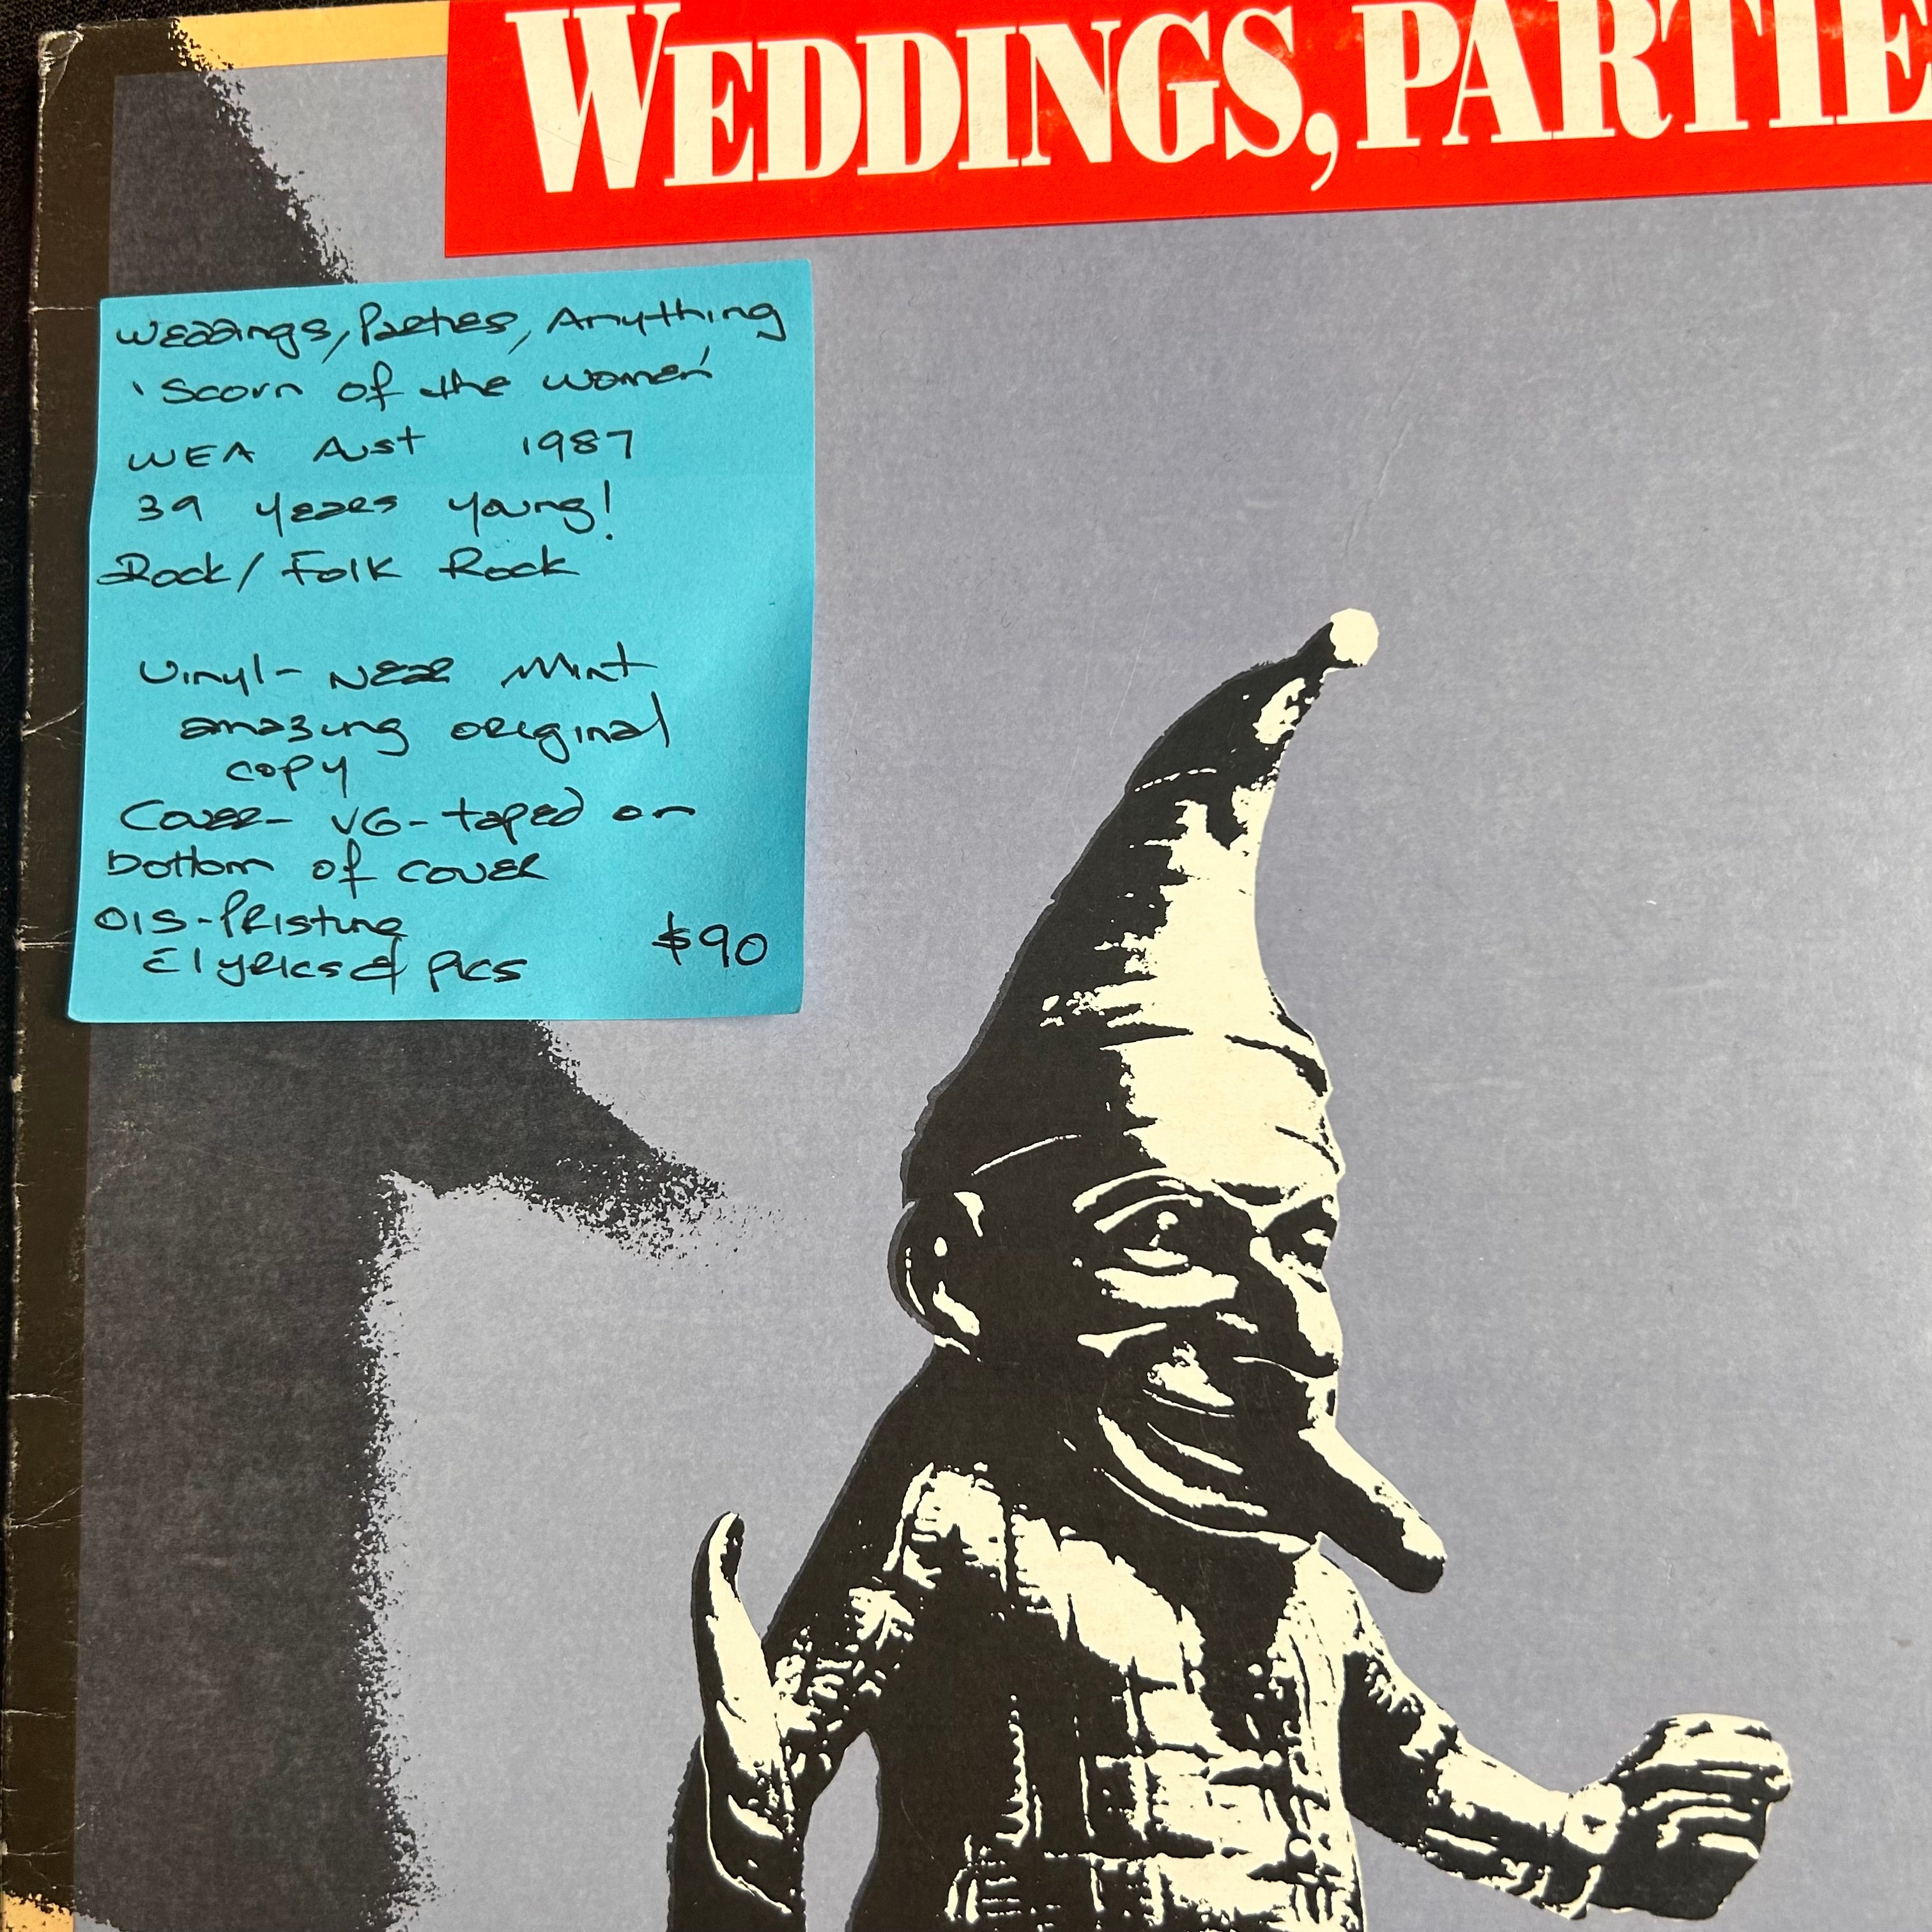 WEDDINGS, PARTIE
Weddings, Parties, Anything
'Scorn of the Women'
WEA Aust 1987
39 years young!
Rock/ Folk Rock
Vinyl- Near Mint
amazing original
copy
Cover- VG- taped on
bottom of cover
OIS-Pristine
c̄ lyrics & pics $90